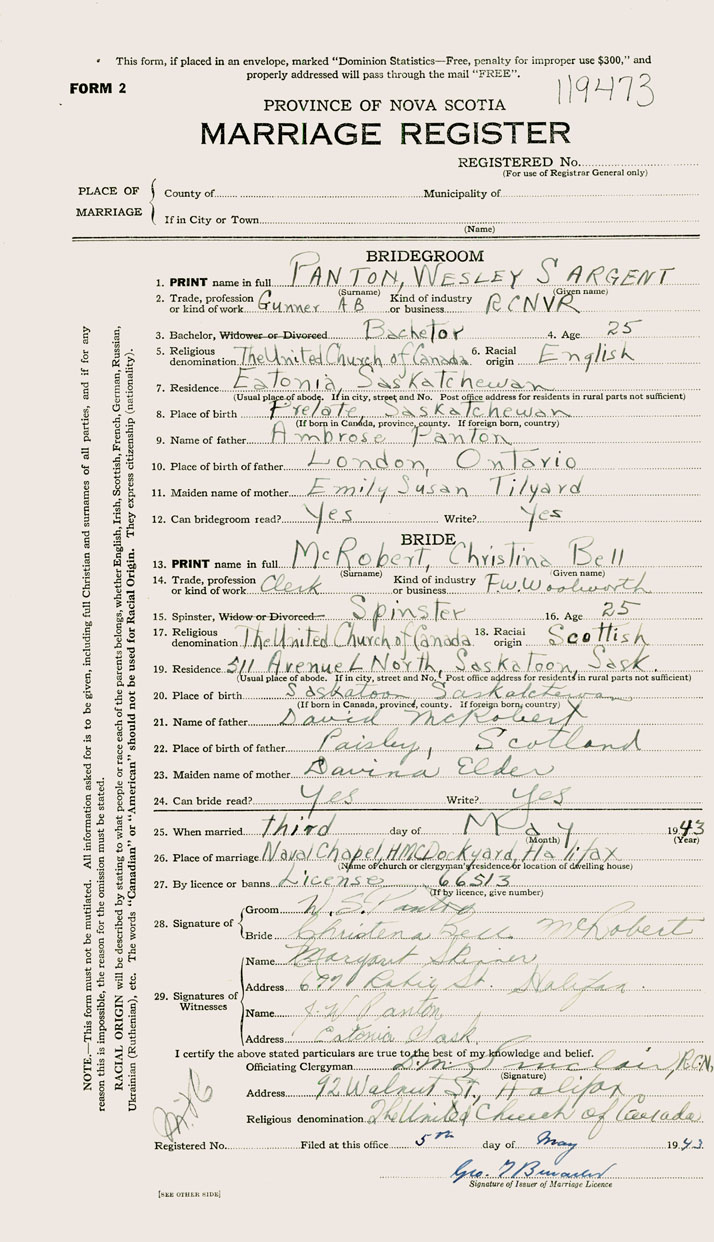 This form, if placed in an envelope, marked "Dominion Statistics—Free, penalty for improper use $300," and
properly addressed will pass through the mail "FREE".
FORM 2
119473
PROVINCE OF NOVA SCOTIA
MARRIAGE REGISTER
REGISTERED No.
(For use of Registrar General only)
PLACE OF MARRIAGE
County of Municipality of
If in City or Town
(Name)
BRIDEGROOM
1. PRINT name in full PANTON, WESLEY SARGENT
(Surname) (Given name)
2. Trade, profession or kind of work Gunner AB Kind of industry or business RCNVR
3. Bachelor, Widower or Divorced Bachelor 4. Age 25
5. Religious denomination The United Church of Canada 6. Racial origin English
7. Residence Eatonia, Saskatchewan
(Usual place of abode. If in city, street and No. Post office address for residents in rural parts not sufficient)
8. Place of birth Prelate, Saskatchewan
(If born in Canada, province, county. If foreign born, country)
9. Name of father Ambrose Panton
10. Place of birth of father London, Ontario
11. Maiden name of mother Emily Susan Tilyard
12. Can bridegroom read? Yes Write? Yes
BRIDE
13. PRINT name in full McRobert, Christina Bell
(Surname) (Given name)
14. Trade, profession or kind of work Clerk Kind of industry or business F.W. Woolworth
15. Spinster, Widow or Divorced Spinster 16. Age 25
17. Religious denomination The United Church of Canada 18. Racial origin Scottish
19. Residence 511 Avenue L North, Saskatoon, Sask.
(Usual place of abode. If in city, street and No. Post office address for residents in rural parts not sufficient)
20. Place of birth Saskatoon Saskatchewan
(If born in Canada, province, county. If foreign born, country)
21. Name of father David McRobert
22. Place of birth of father Paisley, Scotland
23. Maiden name of mother Davina Elder
24. Can bride read? Yes Write? Yes
25. When married third day of May 1943
(Month) (Year)
26. Place of marriage Naval Chapel, HMC Dockyard, Halifax
(Name of church or clergyman's residence or location of dwelling house)
27. By licence or banns License 66513
(If by licence, give number)
28. Signature of
Groom W. S. Panton
Bride Christena Bell McRobert
29. Signatures of Witnesses
Name Margaret Skinner
Address St. Halifax.
Name J. W. Panton
Address Eatonia Sask.
I certify the above stated particulars are true to the best of my knowledge and belief.
Officiating Clergyman Sinclair, R.C.N.
(Signature)
Address 92 Walnut St., Halifax
Religious denomination The United Church of Canada
Registered No. Filed at this office 5th day of May 1943
Geo.
Signature of Issuer of Marriage Licence
[SEE OTHER SIDE]
NOTE.—This form must not be mutilated. All information asked for is to be given, including full Christian and surnames of all parties, and if for any
reason this is impossible, the reason for the omission must be stated.
RACIAL ORIGIN will be described by stating to what people or race each of the parents belongs, whether English, Irish, Scottish, French, German, Russian,
Ukrainian (Ruthenian), etc. The words "Canadian" or "American" should not be used for Racial Origin. They express citizenship (nationality).